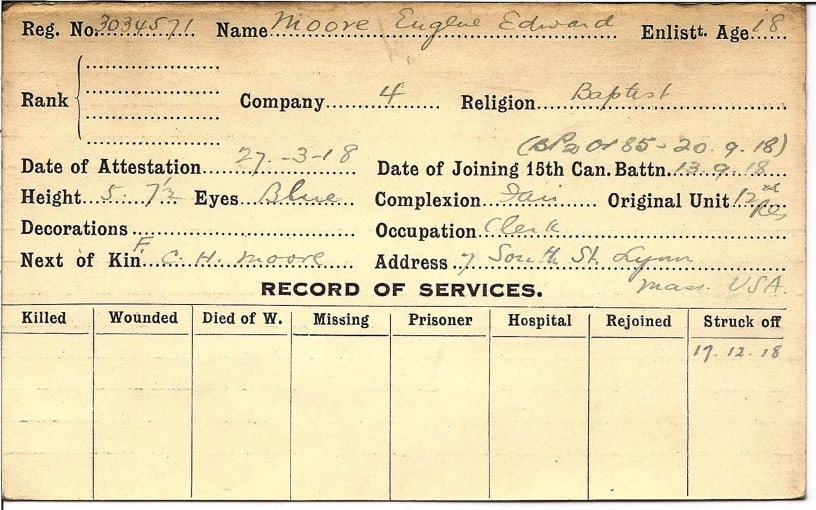 Reg. No. 3034571 Name Moore Eugene Edward Enlistt. Age 18
Rank Company 4 Religion Baptist
(BP2 Or 85 - 20.9.18)
Date of Attestation 27.-3-18 Date of Joining 15th Can. Battn. 13.9.18
Height 5.7½ Eyes Blue Complexion Fair Original Unit 12nd Res
Decorations Occupation Clerk
Next of Kin F. C. H. Moore Address 7 South St. Lynn
Mass. USA.
RECORD OF SERVICES.
Killed Wounded Died of W. Missing Prisoner Hospital Rejoined Struck off
17.12.18